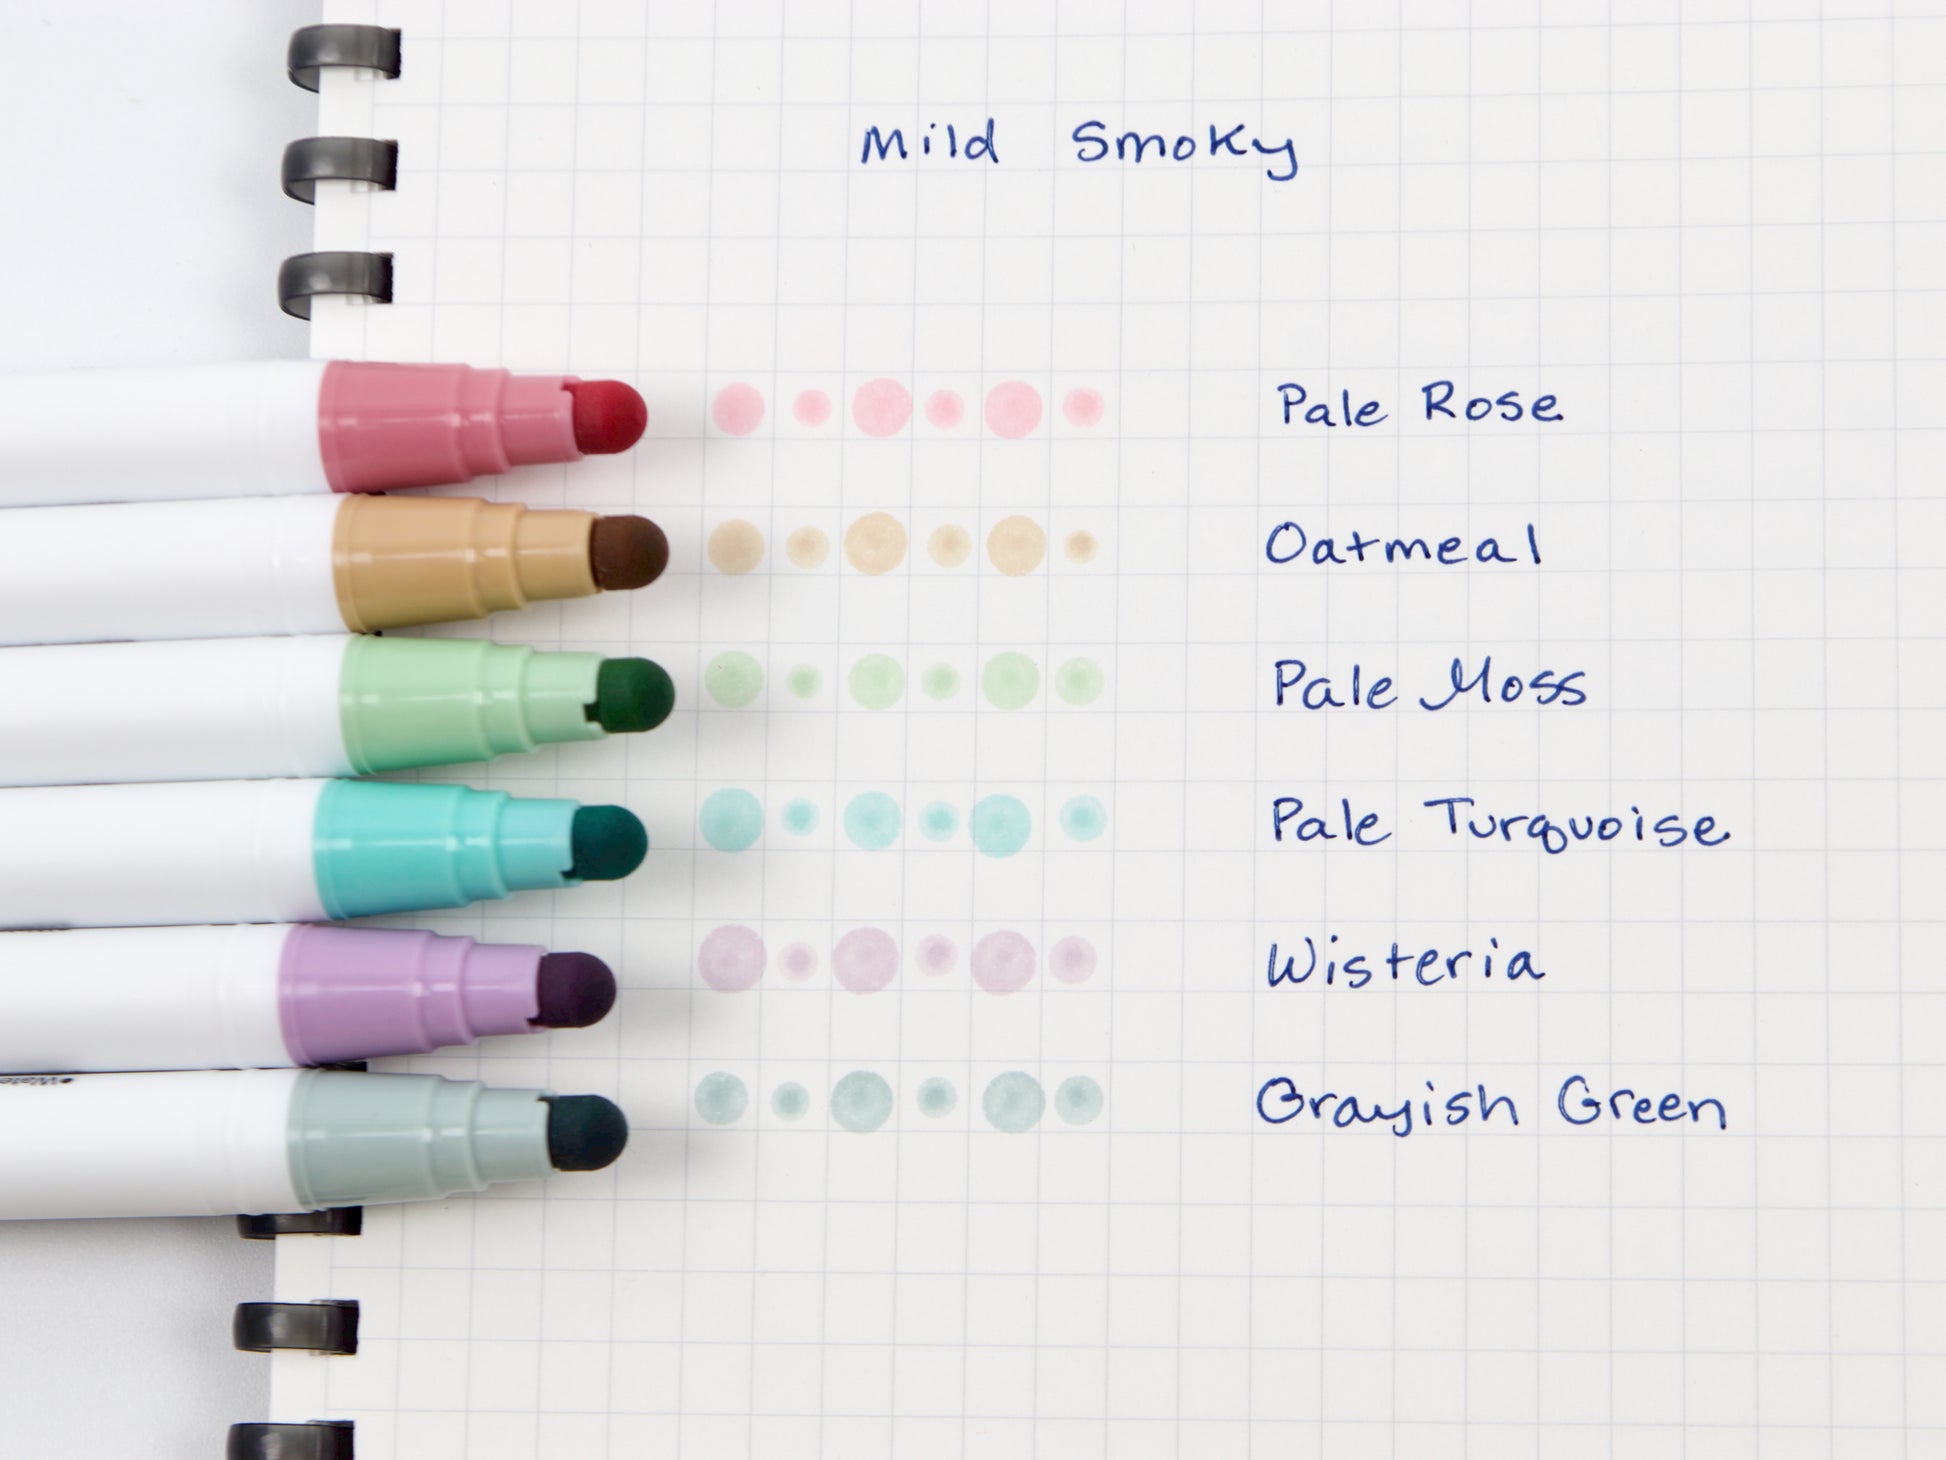 Mild Smoky
Pale Rose
Oatmeal
Pale Moss
Pale Turquoise
Wisteria
Grayish Green